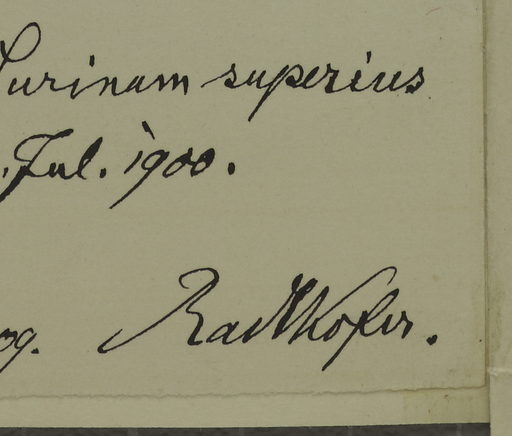 Surinam superius
. Jul. 1900.
og. Radlkofer.